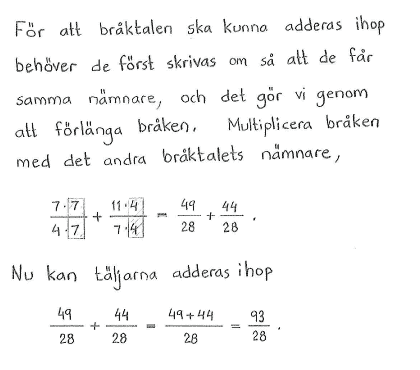 För att bråktalen ska kunna adderas ihop
behöver de först skrivas om så att de får
samma nämnare, och det gör vi genom
att förlänga bråken. Multiplicera bråken
med det andra bråktalets nämnare,
7·7/4·7 + 11·4/7·4 = 49/28 + 44/28 .
Nu kan täljarna adderas ihop
49/28 + 44/28 = 49+44/28 = 93/28 .